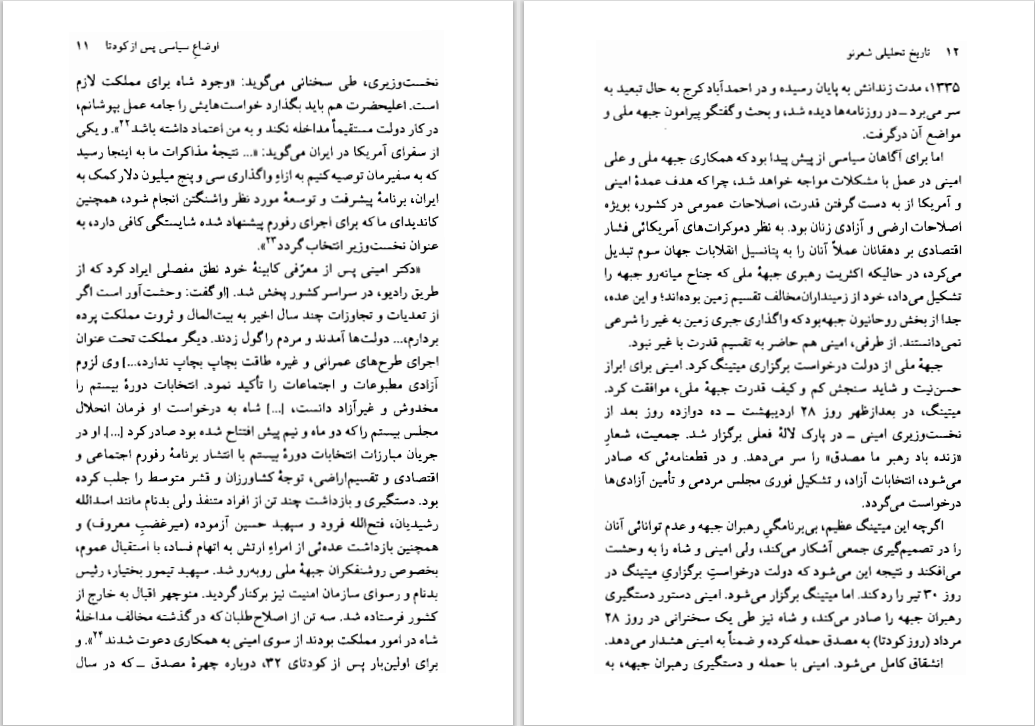 اوضاع سیاسی پس از کودتا ۱۱
نخست‌وزیری، طی سخنانی می‌گوید: «وجود شاه برای مملکت لازم
است. اعلیحضرت هم باید بگذارد خواست‌هایش را جامه عمل بپوشانم،
در کار دولت مستقیماً مداخله نکند و به من اعتماد داشته باشد۲۲». و یکی
از سفرای آمریکا در ایران می‌گوید: «... نتیجهٔ مذاکرات ما به اینجا رسید
که به سفیرمان توصیه کنیم به ازاءِ واگذاری سی و پنج میلیون دلار کمک به
ایران، برنامهٔ پیشرفت و توسعهٔ مورد نظر واشنگتن انجام شود، همچنین
کاندیدای ما که برای اجرای رفورم پیشنهاد شده شایستگی کافی دارد، به
عنوان نخست‌وزیر انتخاب گردد۲۳».
«دکتر امینی پس از معرّفی کابینهٔ خود نطق مفصلی ایراد کرد که از
طریق رادیو، در سراسر کشور پخش شد. [او گفت: وحشت‌آور است اگر
از تعدیات و تجاوزات چند سال اخیر به بیت‌المال و ثروت مملکت پرده
بردارم،... دولت‌ها آمدند و مردم را گول زدند. دیگر مملکت تحت عنوان
اجرای طرح‌های عمرانی و غیره طاقت بچاپ بچاپ ندارد،...] وی لزوم
آزادی مطبوعات و اجتماعات را تأکید نمود. انتخابات دورهٔ بیستم را
مخدوش و غیرآزاد دانست، [...] شاه به درخواست او فرمان انحلال
مجلس بیستم را که دو ماه و نیم پیش افتتاح شده بود صادر کرد [...]. او در
جریان مبارزات انتخابات دورهٔ بیستم با انتشار برنامهٔ رفورم اجتماعی و
اقتصادی و تقسیم‌اراضی، توجهٔ کشاورزان و قشر متوسط را جلب کرده
بود. دستگیری و بازداشت چند تن از افراد متنفذ ولی بدنام مانند اسدالله
رشیدیان، فتح‌الله فرود و سپهبد حسین آزموده (میرغضبِ معروف) و
همچنین بازداشت عده‌ئی از امراءِ ارتش به اتهام فساد، با استقبال عموم،
بخصوص روشنفکران جبههٔ ملی روبه‌رو شد. سپهبد تیمور بختیار، رئیس
بدنام و رسوای سازمان امنیت نیز برکنار گردید. منوچهر اقبال به خارج از
کشور فرستاده شد. سه تن از اصلاح‌طلبان که در گذشته مخالف مداخلهٔ
شاه در امور مملکت بودند از سوی امینی به همکاری دعوت شدند۲۴». و
برای اولین‌بار پس از کودتای ۳۲، دوباره چهرهٔ مصدق ــ که در سال
۱۲ تاریخ تحلیلی شعرنو
۱۳۳۵، مدت زندانش به پایان رسیده و در احمدآباد کرج به حال تبعید به
سر می‌برد ــ در روزنامه‌ها دیده شد، و بحث و گفتگو پیرامون جبهه ملی و
مواضع آن درگرفت.
اما برای آگاهان سیاسی از پیش پیدا بود که همکاری جبهه ملی و علی
امینی در عمل با مشکلات مواجه خواهد شد، چرا که هدف عمدهٔ امینی
و آمریکا از به دست گرفتن قدرت، اصلاحات عمومی در کشور، بویژه
اصلاحات ارضی و آزادی زنان بود. به نظر دموکرات‌های آمریکائی فشار
اقتصادی بر دهقانان عملاً آنان را به پتانسیل انقلابات جهان سوم تبدیل
می‌کرد، در حالیکه اکثریت رهبری جبههٔ ملی که جناح میانه‌رو جبهه را
تشکیل می‌داد، خود از زمینداران مخالف تقسیم زمین بوده‌اند؛ و این عده،
جدا از بخش روحانیون جبهه بود که واگذاری جبری زمین به غیر را شرعی
نمی‌دانستند. از طرفی، امینی هم حاضر به تقسیم قدرت با غیر نبود.
جبههٔ ملی از دولت درخواست برگزاری میتینگ کرد. امینی برای ابراز
حسن‌نیت و شاید سنجش کم و کیف قدرت جبههٔ ملی، موافقت کرد.
میتینگ، در بعدازظهر روز ۲۸ اردیبهشت ــ ده دوازده روز بعد از
نخست‌وزیری امینی ــ در پارک لالهٔ فعلی برگزار شد. جمعیت، شعارِ
«زنده باد رهبر ما مصدق» را سر می‌دهد. و در قطعنامه‌ئی که صادر
می‌شود، انتخابات آزاد، و تشکیل فوری مجلس مردمی و تأمین آزادی‌ها
درخواست می‌گردد.
اگرچه این میتینگ عظیم، بی‌برنامگیِ رهبران جبهه و عدم توانائی آنان
را در تصمیم‌گیری جمعی آشکار می‌کند، ولی امینی و شاه را به وحشت
می‌افکند و نتیجه این می‌شود که دولت درخواستِ برگزاریِ میتینگ در
روز ۳۰ تیر را رد کند. اما میتینگ برگزار می‌شود. امینی دستور دستگیری
رهبران جبهه را صادر می‌کند، و شاه نیز طی یک سخنرانی در روز ۲۸
مرداد (روز کودتا) به مصدق حمله کرده و ضمناً به امینی هشدار می‌دهد.
انشقاق کامل می‌شود. امینی با حمله و دستگیری رهبران جبهه، به